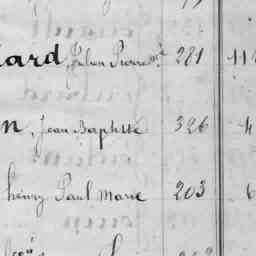 ard, Julien Pierre Mie 281 11
n, Jean Baptiste 326 4
henry Paul Marie 203 6